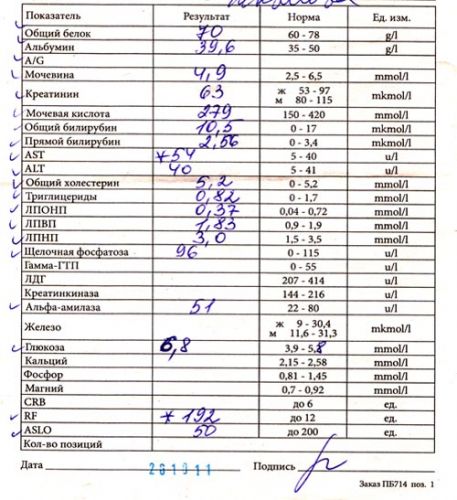 Показатель Результат Норма Ед. изм.
Общий белок 70 60 - 78 g/l
Альбумин 39,6 35 - 50 g/l
A/G
Мочевина 4,9 2,5 - 6,5 mmol/l
Креатинин 63 ж 53 - 97 м 80 - 115 mkmol/l
Мочевая кислота 279 150 - 420 mmol/l
Общий билирубин 10,5 0 - 17 mkmol/l
Прямой билирубин 2,56 0 - 3,4 mkmol/l
AST *54 5 - 40 u/l
ALT 40 5 - 41 u/l
Общий холестерин 5,2 0 - 5,2 mmol/l
Триглицериды 0,82 0 - 1,7 mmol/l
ЛПОНП 0,37 0,04 - 0,72 mmol/l
ЛПВП 1,83 0,9 - 1,9 mmol/l
ЛПНП 3,0 1,5 - 3,5 mmol/l
Щелочная фосфатоза 96 0 - 115 u/l
Гамма-ГТП 0 - 55 u/l
ЛДГ 207 - 414 u/l
Креатинкиназа 144 - 216 u/l
Альфа-амилаза 51 22 - 80 u/l
Железо ж 9 - 30,4 м 11,6 - 31,3 mkmol/l
Глюкоза 6,8 3,9 - 5,8 mmol/l
Кальций 2,15 - 2,58 mmol/l
Фосфор 0,81 - 1,45 mmol/l
Магний 0,7 - 0,92 mmol/l
CRB до 6 ед.
RF *192 до 12 ед.
ASLO 50 до 200 ед.
Кол-во позиций
Дата 261011 Подпись
Заказ ПБ714 поз. 1